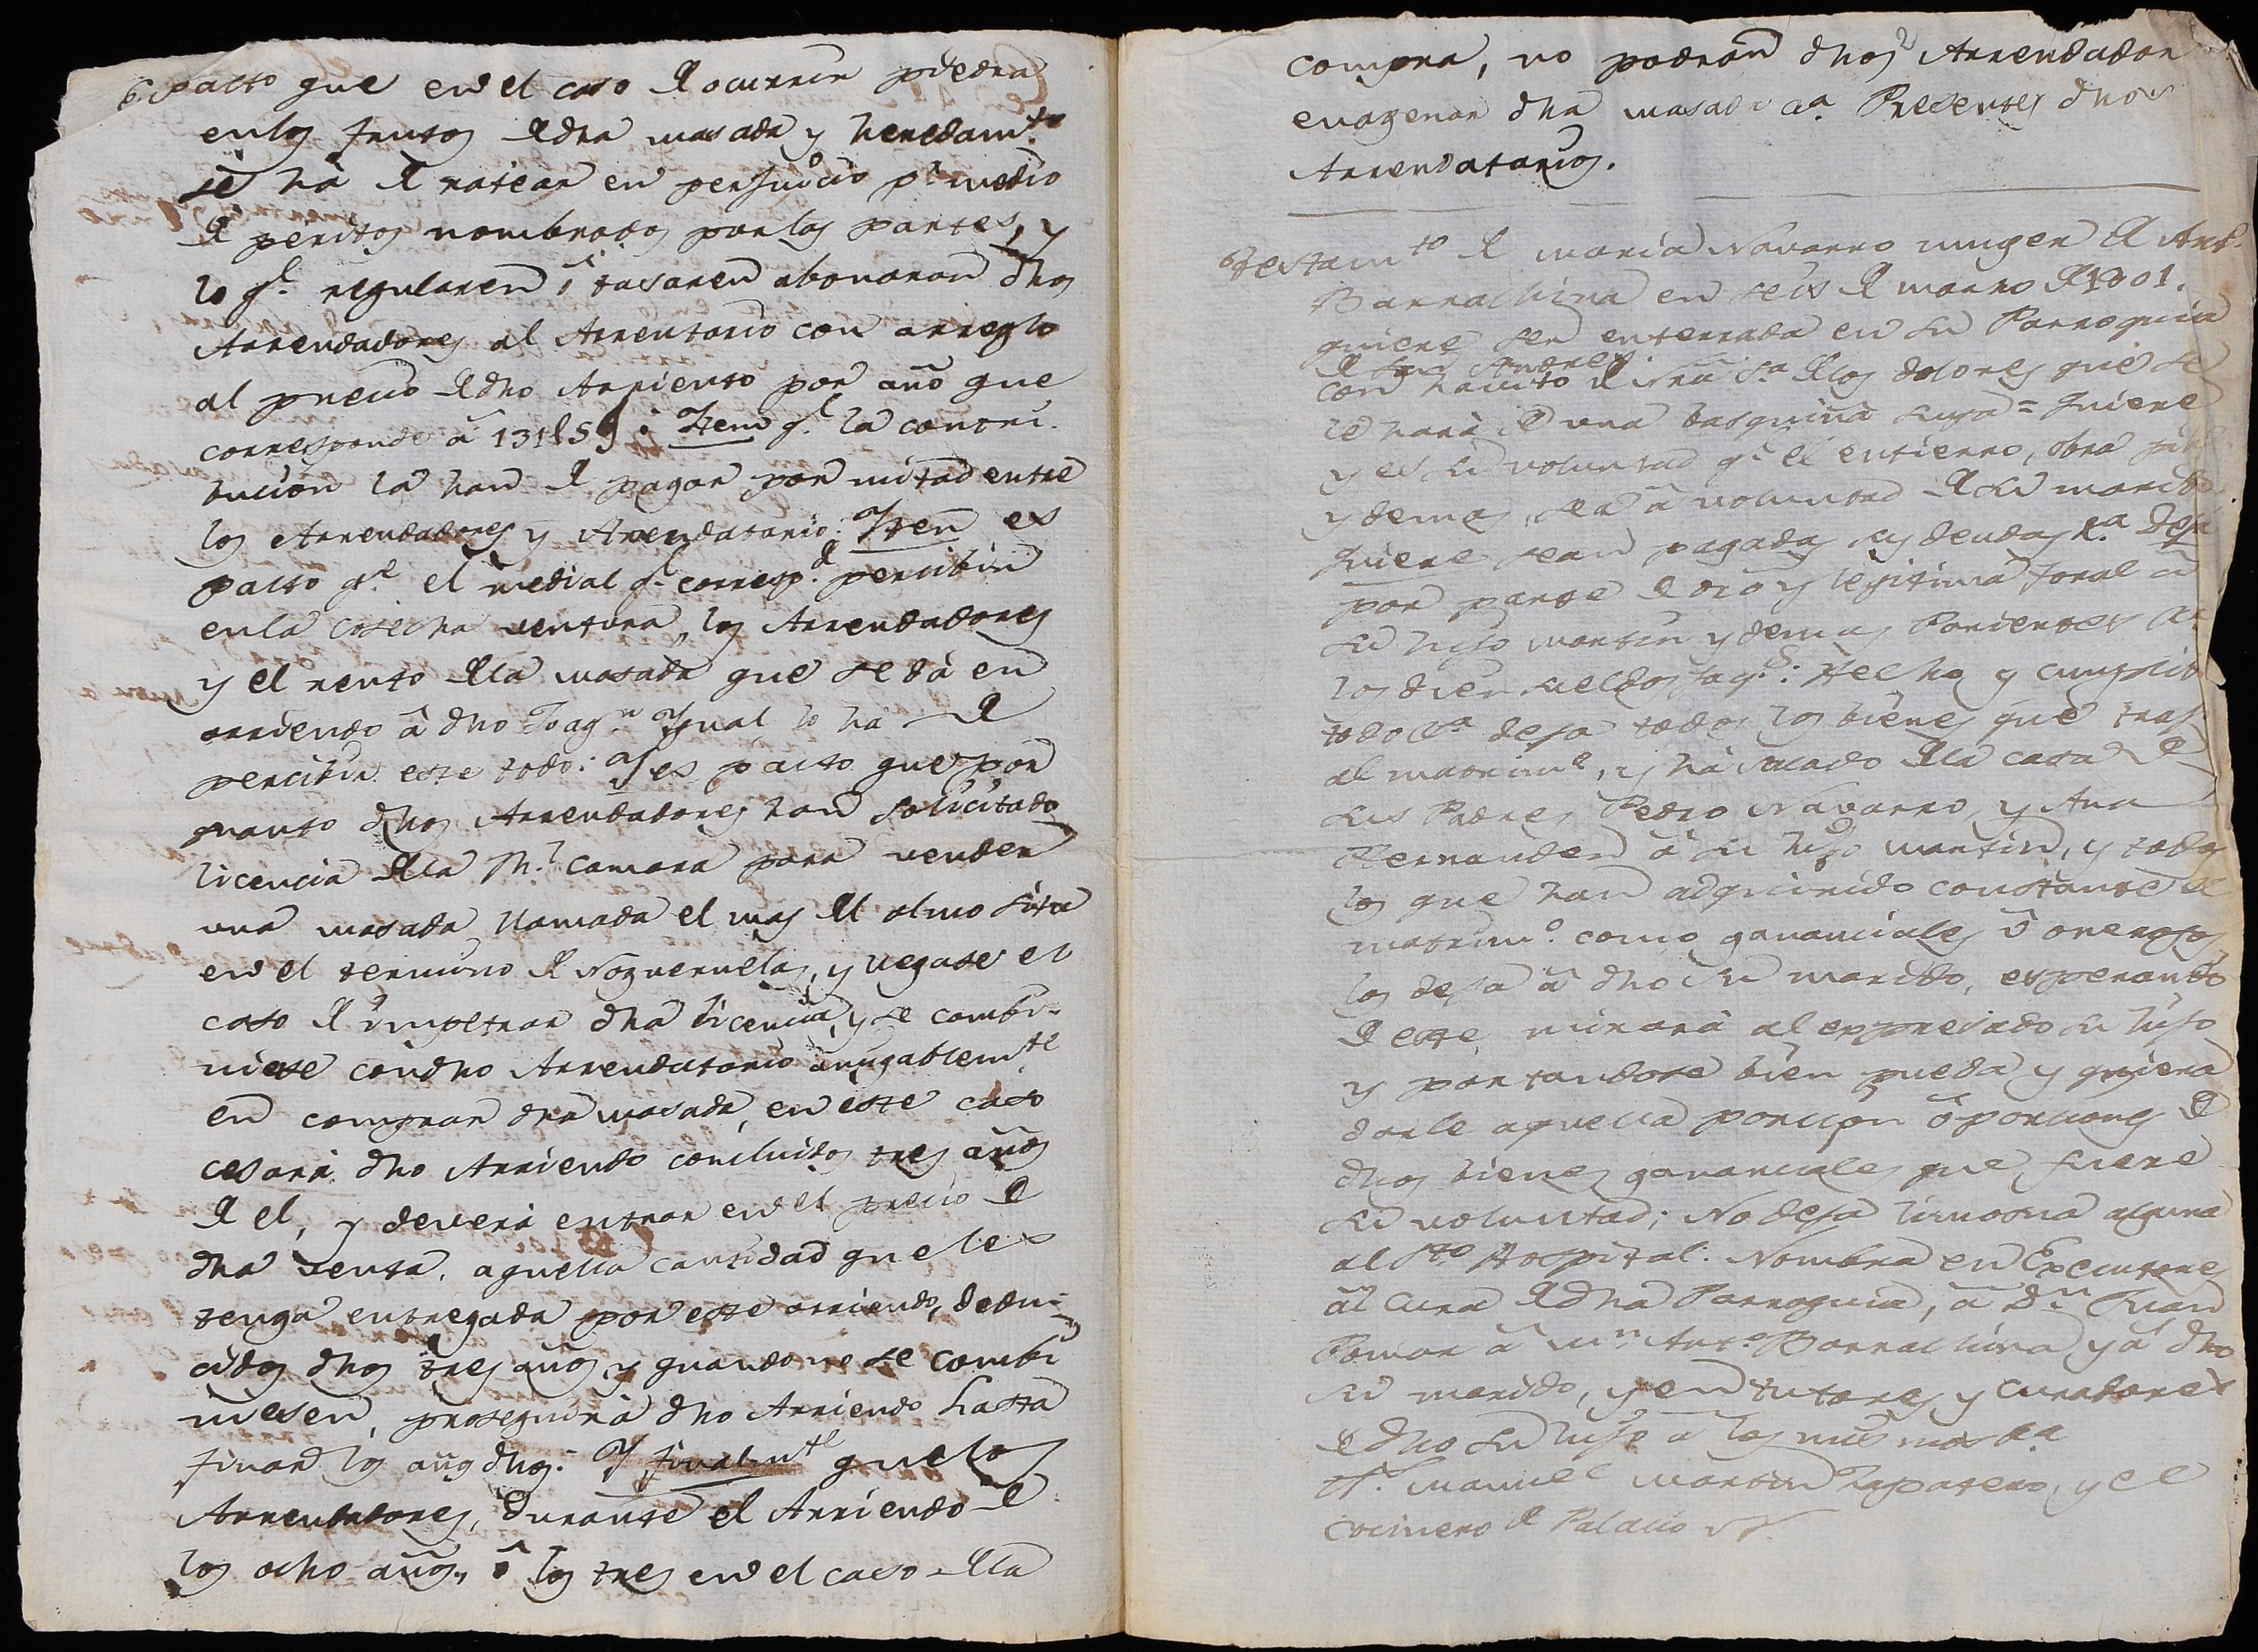 pacto que en el caso de ocurrir piedra
en los frutos de dha masada y heredamto
se hà de ratear en perjuicio pr medio
de peritos nombrados por las partes, y
lo qe regularen, ò tasaren abonaran dhos
Arrendadores al Arrentario con arreglo
al precio de dho Arriento por año que
corresponde â 131 £ 5 s: Item qe la contri-
bucion la han de pagar por mitad entre
los Arrendadores y Arrendatario: Iten es
pacto qe el medial qe correspde percibir
en la cosecha ventura, los Arrendadores
y el rento de la masada que se dà en
arriendo â dho Joaqn Igual lo ha de
percibir este todo: Y es pacto que por
quanto dhos Arrendadores han solicitado
licencia de la Rl camara para vender
una masada llamada el mas del olmo sita
en el termino de Nogueruelas, y llegase el
caso de impetrar dha licencia, y se combi-
niese con dho Arrendatario amigablemte
en comprar dha masada, en este caso
cesarà dho Arriendo concluidos tres años
de el, y deverà entrar en el precio de
dha venta, aquella cantidad que les
tenga entregada por este arriendo, dedu-
cidos dhos tres años y quando no se combi
niesen, proseguirà dho Arriendo hasta
finar los años dhos: Y finalmte que los
Arrendadores, durante el Arriendo de
los ocho años, ô los tres en el caso de la
compra, no podran dhos Arrendador
enagenar dha masada a Presentes dhos
Arrendatarios.
Testamto de maria Navarro muger de Anto
Barrachina en seis de marzo de 1801.
quiere ser enterrada en su Parroquia
de San Andres
con havito de Nrâ Sa de los dolores que se
le harà de una basquiña suya = Quiere
y es su voluntad qe el entierro, obra
y demas, sea â voluntad de su marido
Quiere sean pagadas sus deudas Deja
por parte de oro y legitima foral â
su hijo martin y demas Parientes
los diez sueldos jaqs: Hecho y cumplido
todo deja todos los bienes que trajo
al matrimo, y hà sacado de la casa de
sus Padres Pedro Navarro, y Ana
Hernandez â su hijo martin, y todos
los que han adquirido constante el
matrimo como gananciales ô onerosos,
los deja â dho su marido, esperando
de este mirarà al expresado su hijo
y portandose bien pueda y quiera
darle aquella porcion ô porciones de
dhos bienes gananciales que fuere
su voluntad; No deja limosna alguna
al Sto Hospital: Nombra en Executores
al Cura de dha Parroquia, â Dn Juan
Pomar â mn Anto Barrachina y â dho
su marido, y en tutores y curadores
de dho su hijo â los mismos
Ts manuel martin Zapatero, y el
cocinero de Palacio